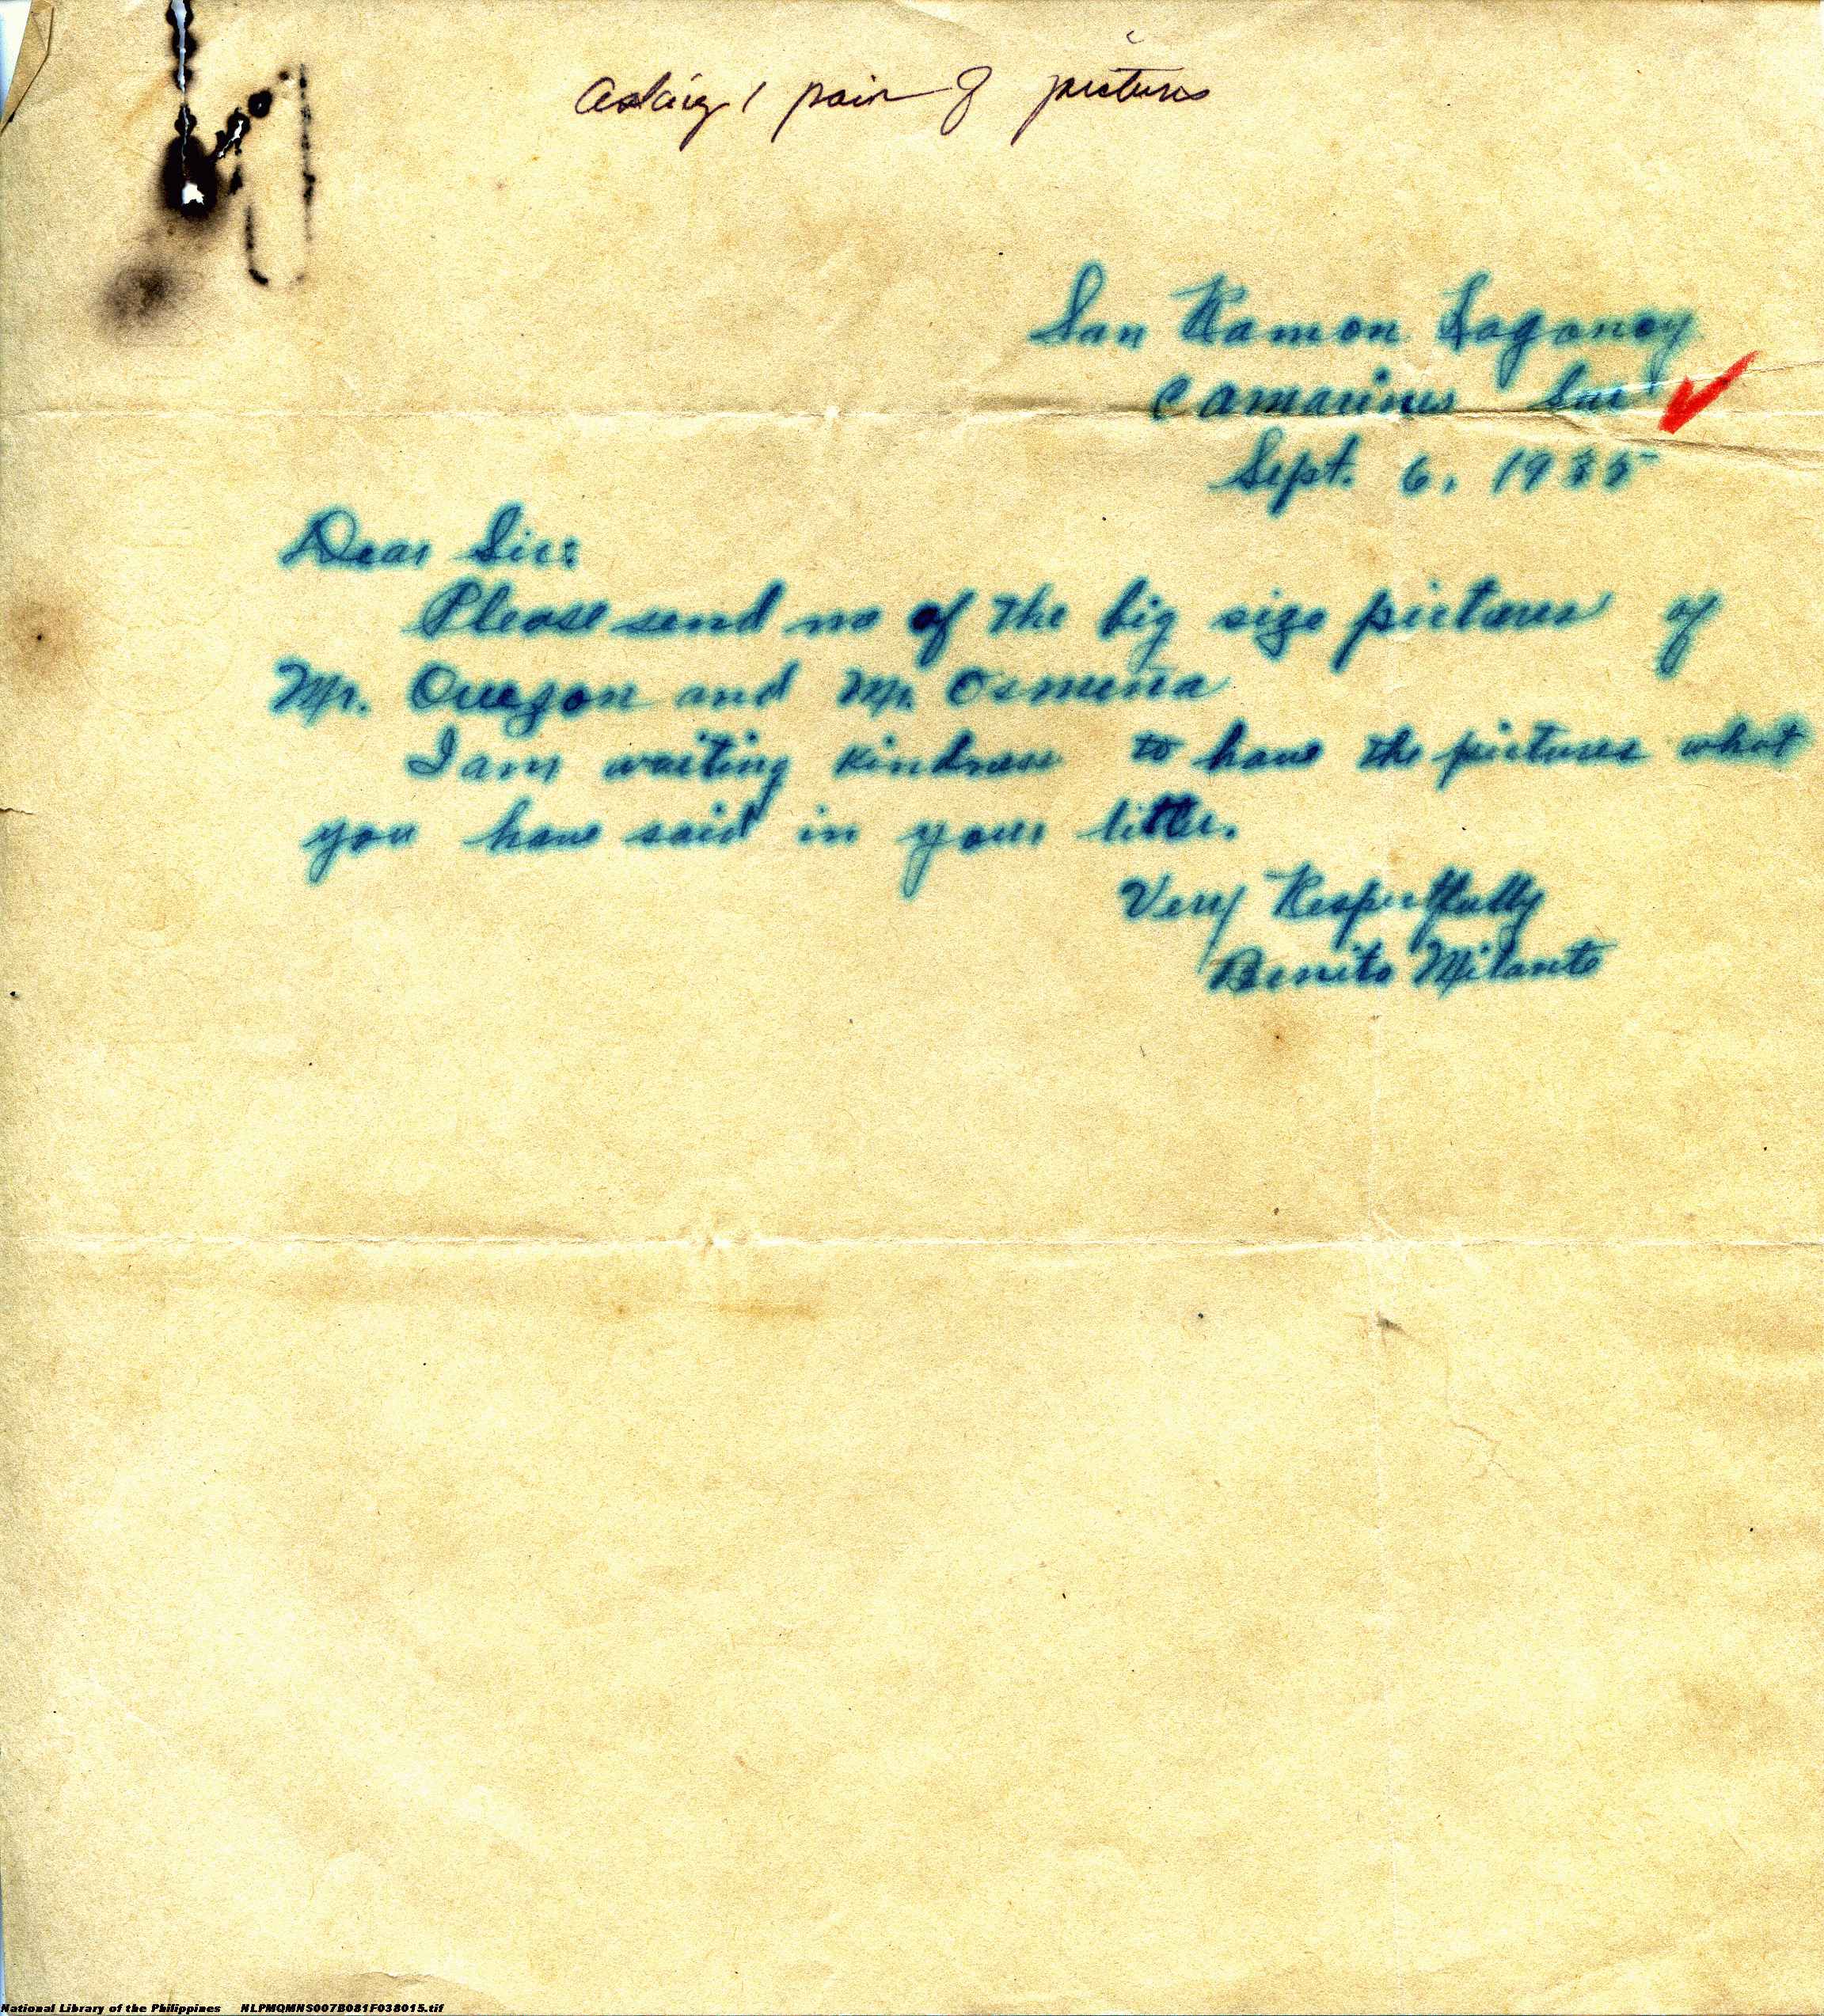 asking 1 pair of pictures
San Ramon Lagonoy
Camarines Sur
Sept. 6, 1935
Dear Sir:
Please send me of the big size pictures of
Mr. Quezon and Mr. Osmeña
I am waiting kindness to have the pictures what
you have said in your litter.
Very Respectfully
Benito Milante
National Library of the Philippines NLPMQMNS007B081F038015.tif